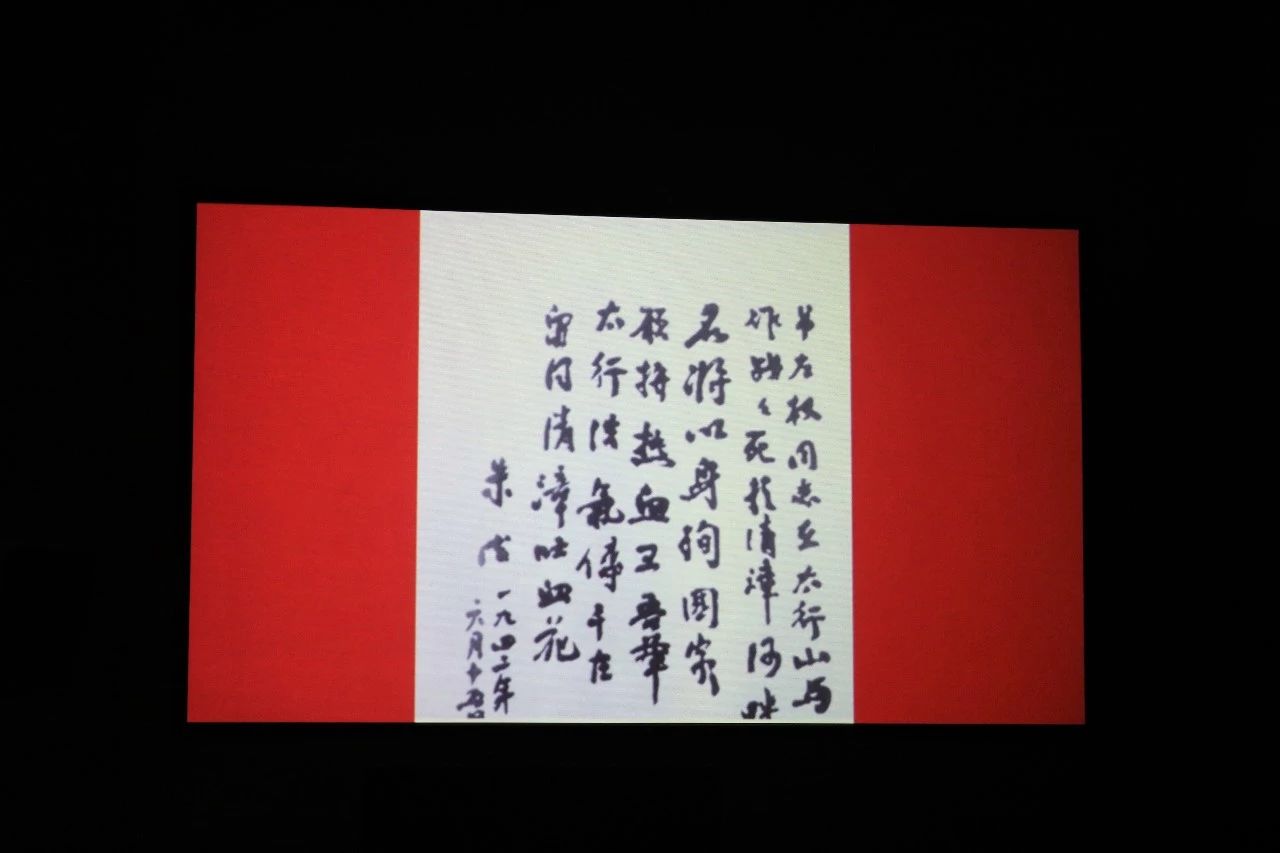 吊左权同志在太行山与
作战々死於清漳河畔
名将以身殉國家
願拼热血卫吾華
太行浩氣傳千古
留得清漳吐血花
朱德
一九四二年
六月十五日